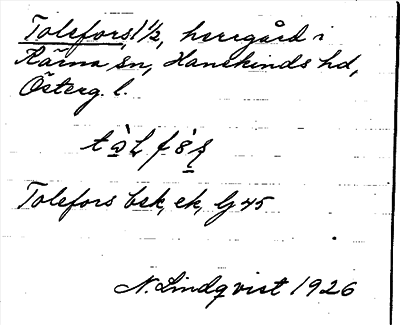 Tolefors, 1 1/2, herrgård i
Kärna sn, Hanekinds hd,
Österg. l.
Tolefors bsk, ek, Gj 45
N. Lindqvist 1926